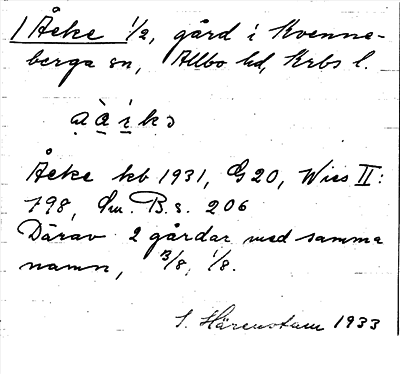 1 Åeke 1/2, gård i Kvenne-
berga sn, Allbo hd, Krbs l.
Åeke kb 1931, G20, Wies II:
798, Sm. B. s. 206
Därav 2 gårdar med samma
namn, 3/8, 1/8.
S. Härenstam 1933